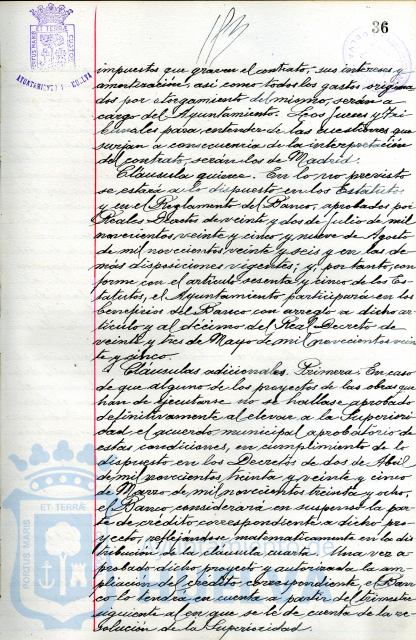 36
PORTUS MARIS ET TERRÆ CUSTODIA
AYUNTAMIENTO HUELVA
impuestos que graven el contrato, sus intereses y
amortización, así como todos los gastos origina
dos por otorgamiento del mismo, serán a
cargo del Ayuntamiento. Los Jueces y Tri
bunales para entender de las cuestiones que
surjan a consecuencia de la interpretación
del contrato, serán los de Madrid.
Cláusula quince. En lo no previsto
se estará a lo dispuesto en los Estatutos
y en el Reglamento del Banco, aprobados por
Reales Decretos de veinte y dos de Julio de mil
novecientos veinte y cinco y nueve de Agosto
de mil novecientos veinte y seis y en las de
más disposiciones vigentes; y, por tanto, con
forme con el artículo sesenta y cinco de los Es-
tatutos, el Ayuntamiento participará en los
beneficios del Banco con arreglo a dicho ar-
tículo y al décimo del Real Decreto de
veinte y tres de Mayo de mil novecientos vein
te y cinco.
Cláusulas adicionales. Primera. En caso
de que alguno de los proyectos de las obras que
han de ejecutarse no se hallase aprobado
definitivamente al elevar a la Superiori-
dad el acuerdo municipal aprobatorio de
estas condiciones, en cumplimiento de lo
dispuesto en los Decretos de dos de Abril
de mil novecientos treinta y veinte y cinco
de Marzo de mil novecientos treinta y ocho,
el Banco considerará en suspenso la par
te de crédito correspondiente a dicho pro-
yecto, reflejándose automáticamente en la dis
tribución de la cuenta. Una vez a-
probado dicho proyecto y autorizada la am-
pliación del crédito correspondiente, el Ban
co lo tendrá en cuenta a partir del trimestre
siguiente al en que se le dé cuenta de la re-
solución de la Superioridad.
PORTUS MARIS ET TERRÆ
Ayuntamiento de
HUELVA